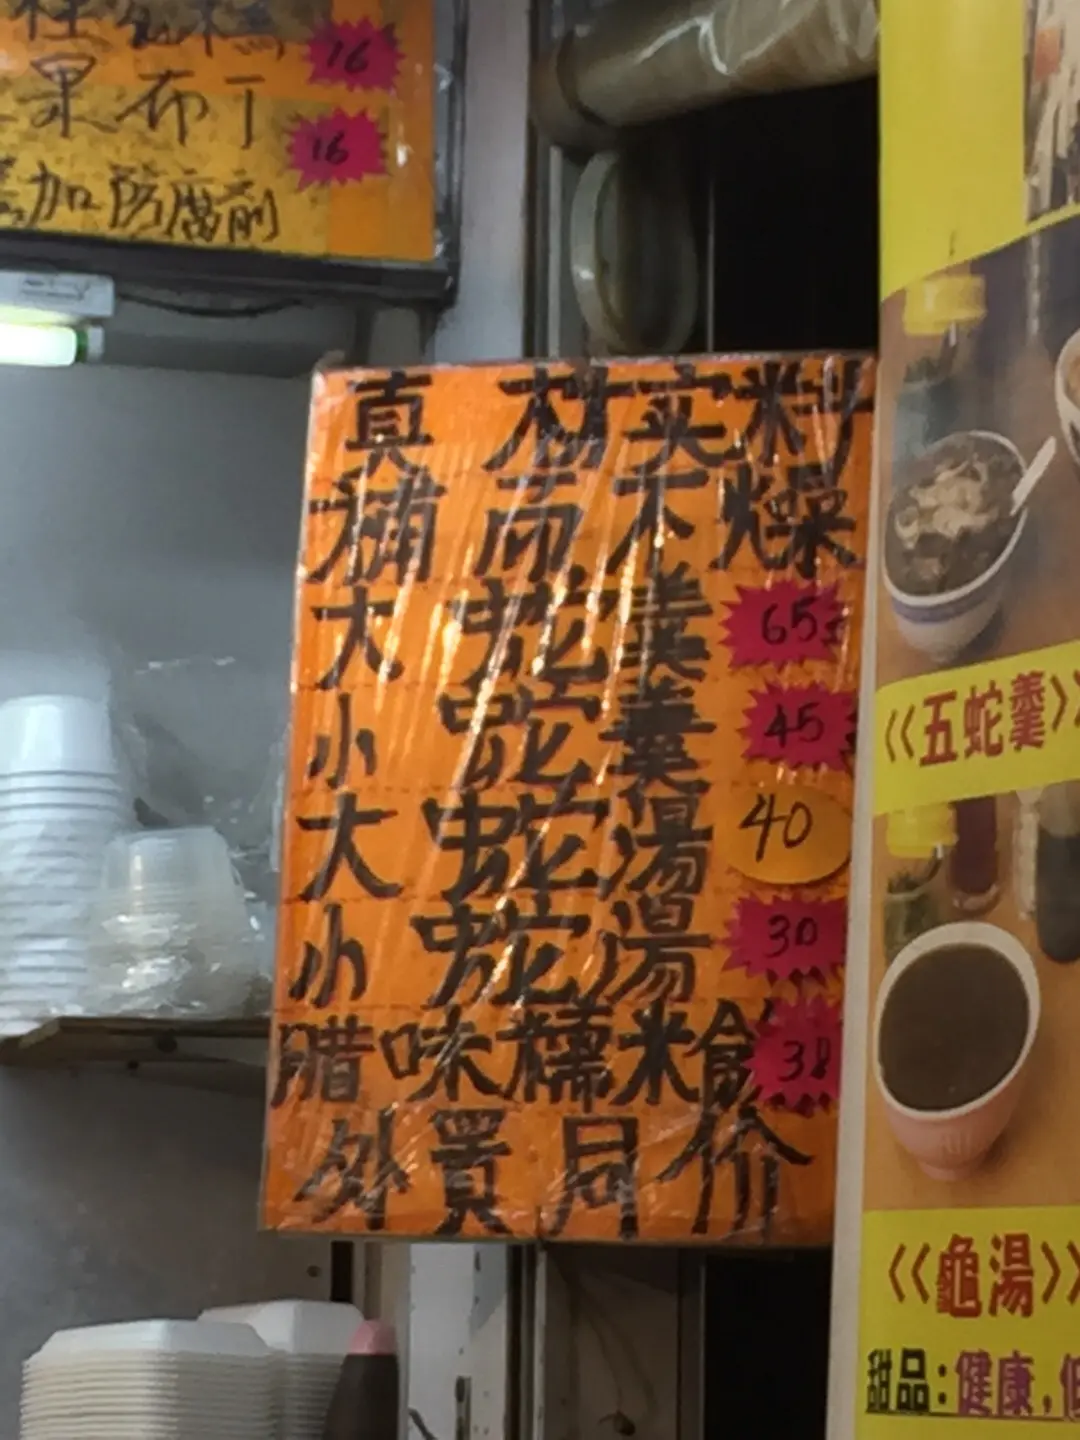 16
果布丁 16
加防腐剤
真材实料
補而不燥
大蛇羹 65
小蛇羹 45
大蛇湯 40
小蛇湯 30
腊味糯米飯 38
外賣同价
<<五蛇羹>>
<<龜湯>>
甜品:健康,